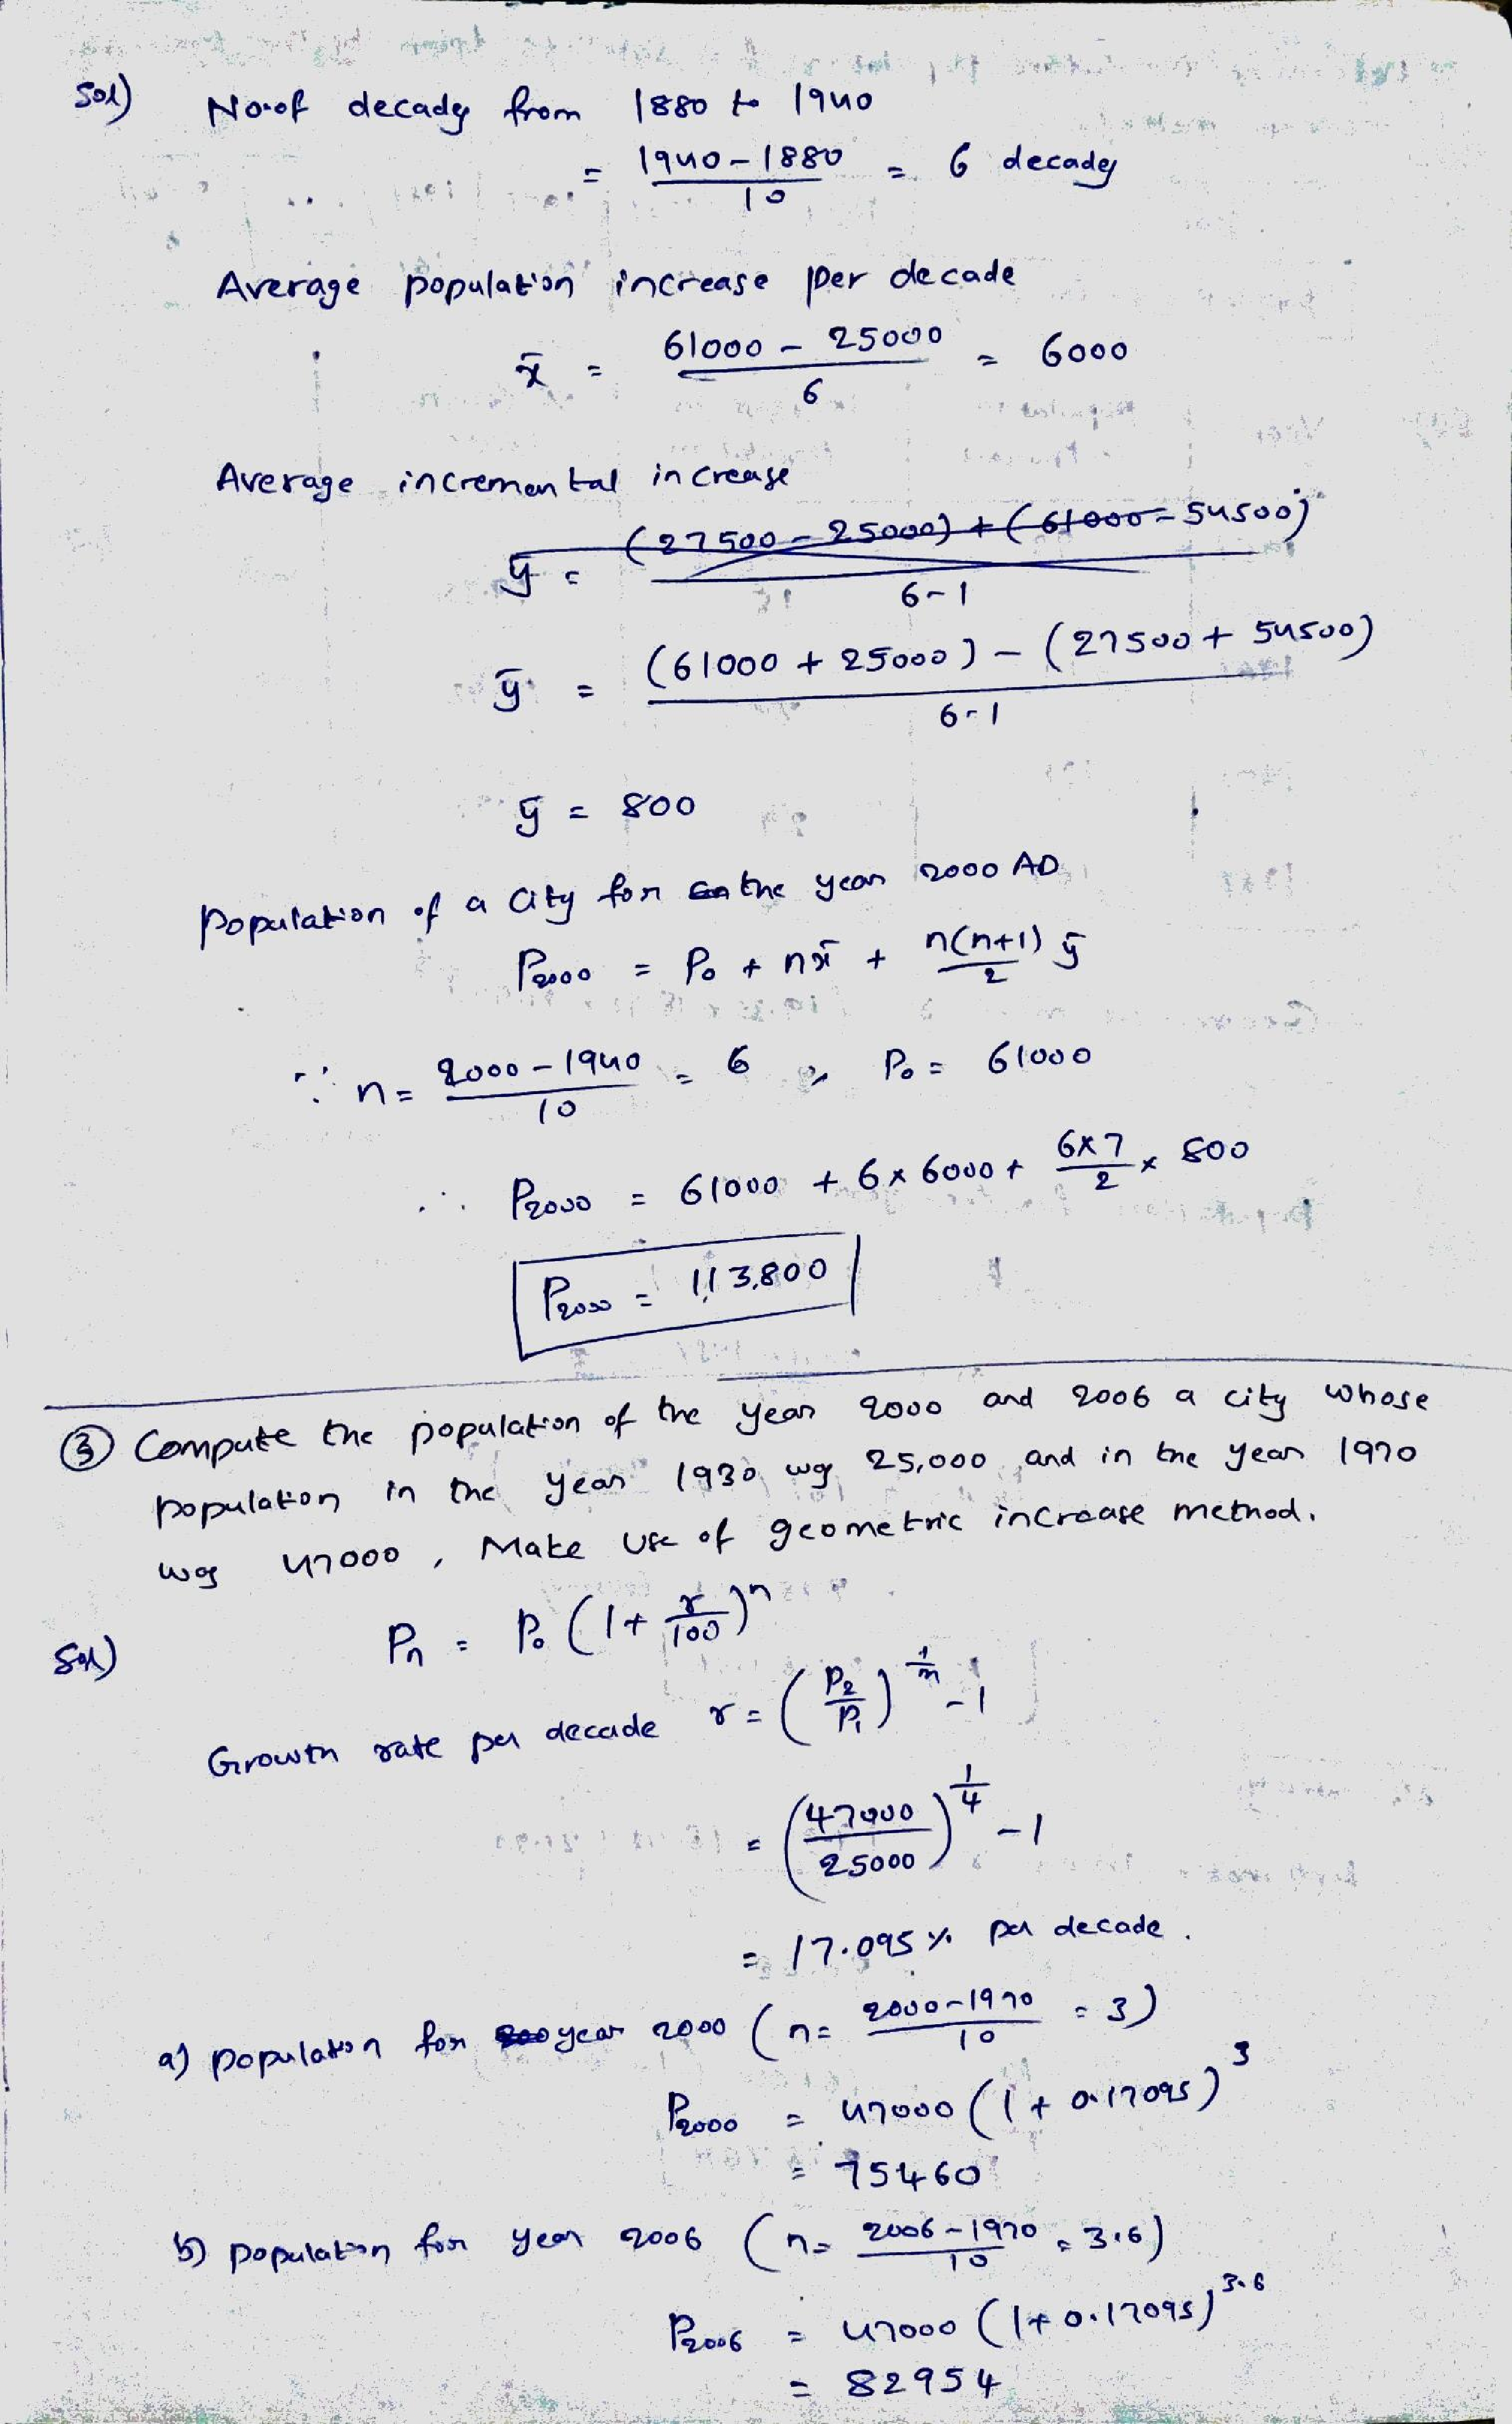 Sol) No. of decades from 1880 to 1940
= (1940 - 1880)/10 = 6 decades
Average population increase per decade
x̄ = (61000 - 25000)/6 = 6000
Average incremental increase
ȳ = (27500 - 25000) + (61000 - 54500)/6-1
ȳ = (61000 + 25000) - (27500 + 54500)/6-1
ȳ = 800
Population of a city for the year 2000 AD
P2000 = P0 + nx̄ + n(n+1)/2 ȳ
∵ n = (2000 - 1940)/10 = 6 , P0 = 61000
∴ P2000 = 61000 + 6 x 6000 + 6x7/2 x 800
P2000 = 1,13,800
③ Compute the population of the year 2000 and 2006 a city whose
population in the year 1930 was 25,000 and in the year 1970
was 47000, Make use of geometric increase method.
Sol) Pn = P0 (1 + r/100)^n
Growth rate per decade r = (P2/P1)^1/m - 1
= (47000/25000)^1/4 - 1
= 17.095 % per decade.
a) population for year 2000 (n = (2000-1970)/10 = 3)
P2000 = 47000 (1 + 0.17095)^3
= 75460
b) population for year 2006 (n = (2006-1970)/10 = 3.6)
P2006 = 47000 (1+0.17095)^3.6
= 82954